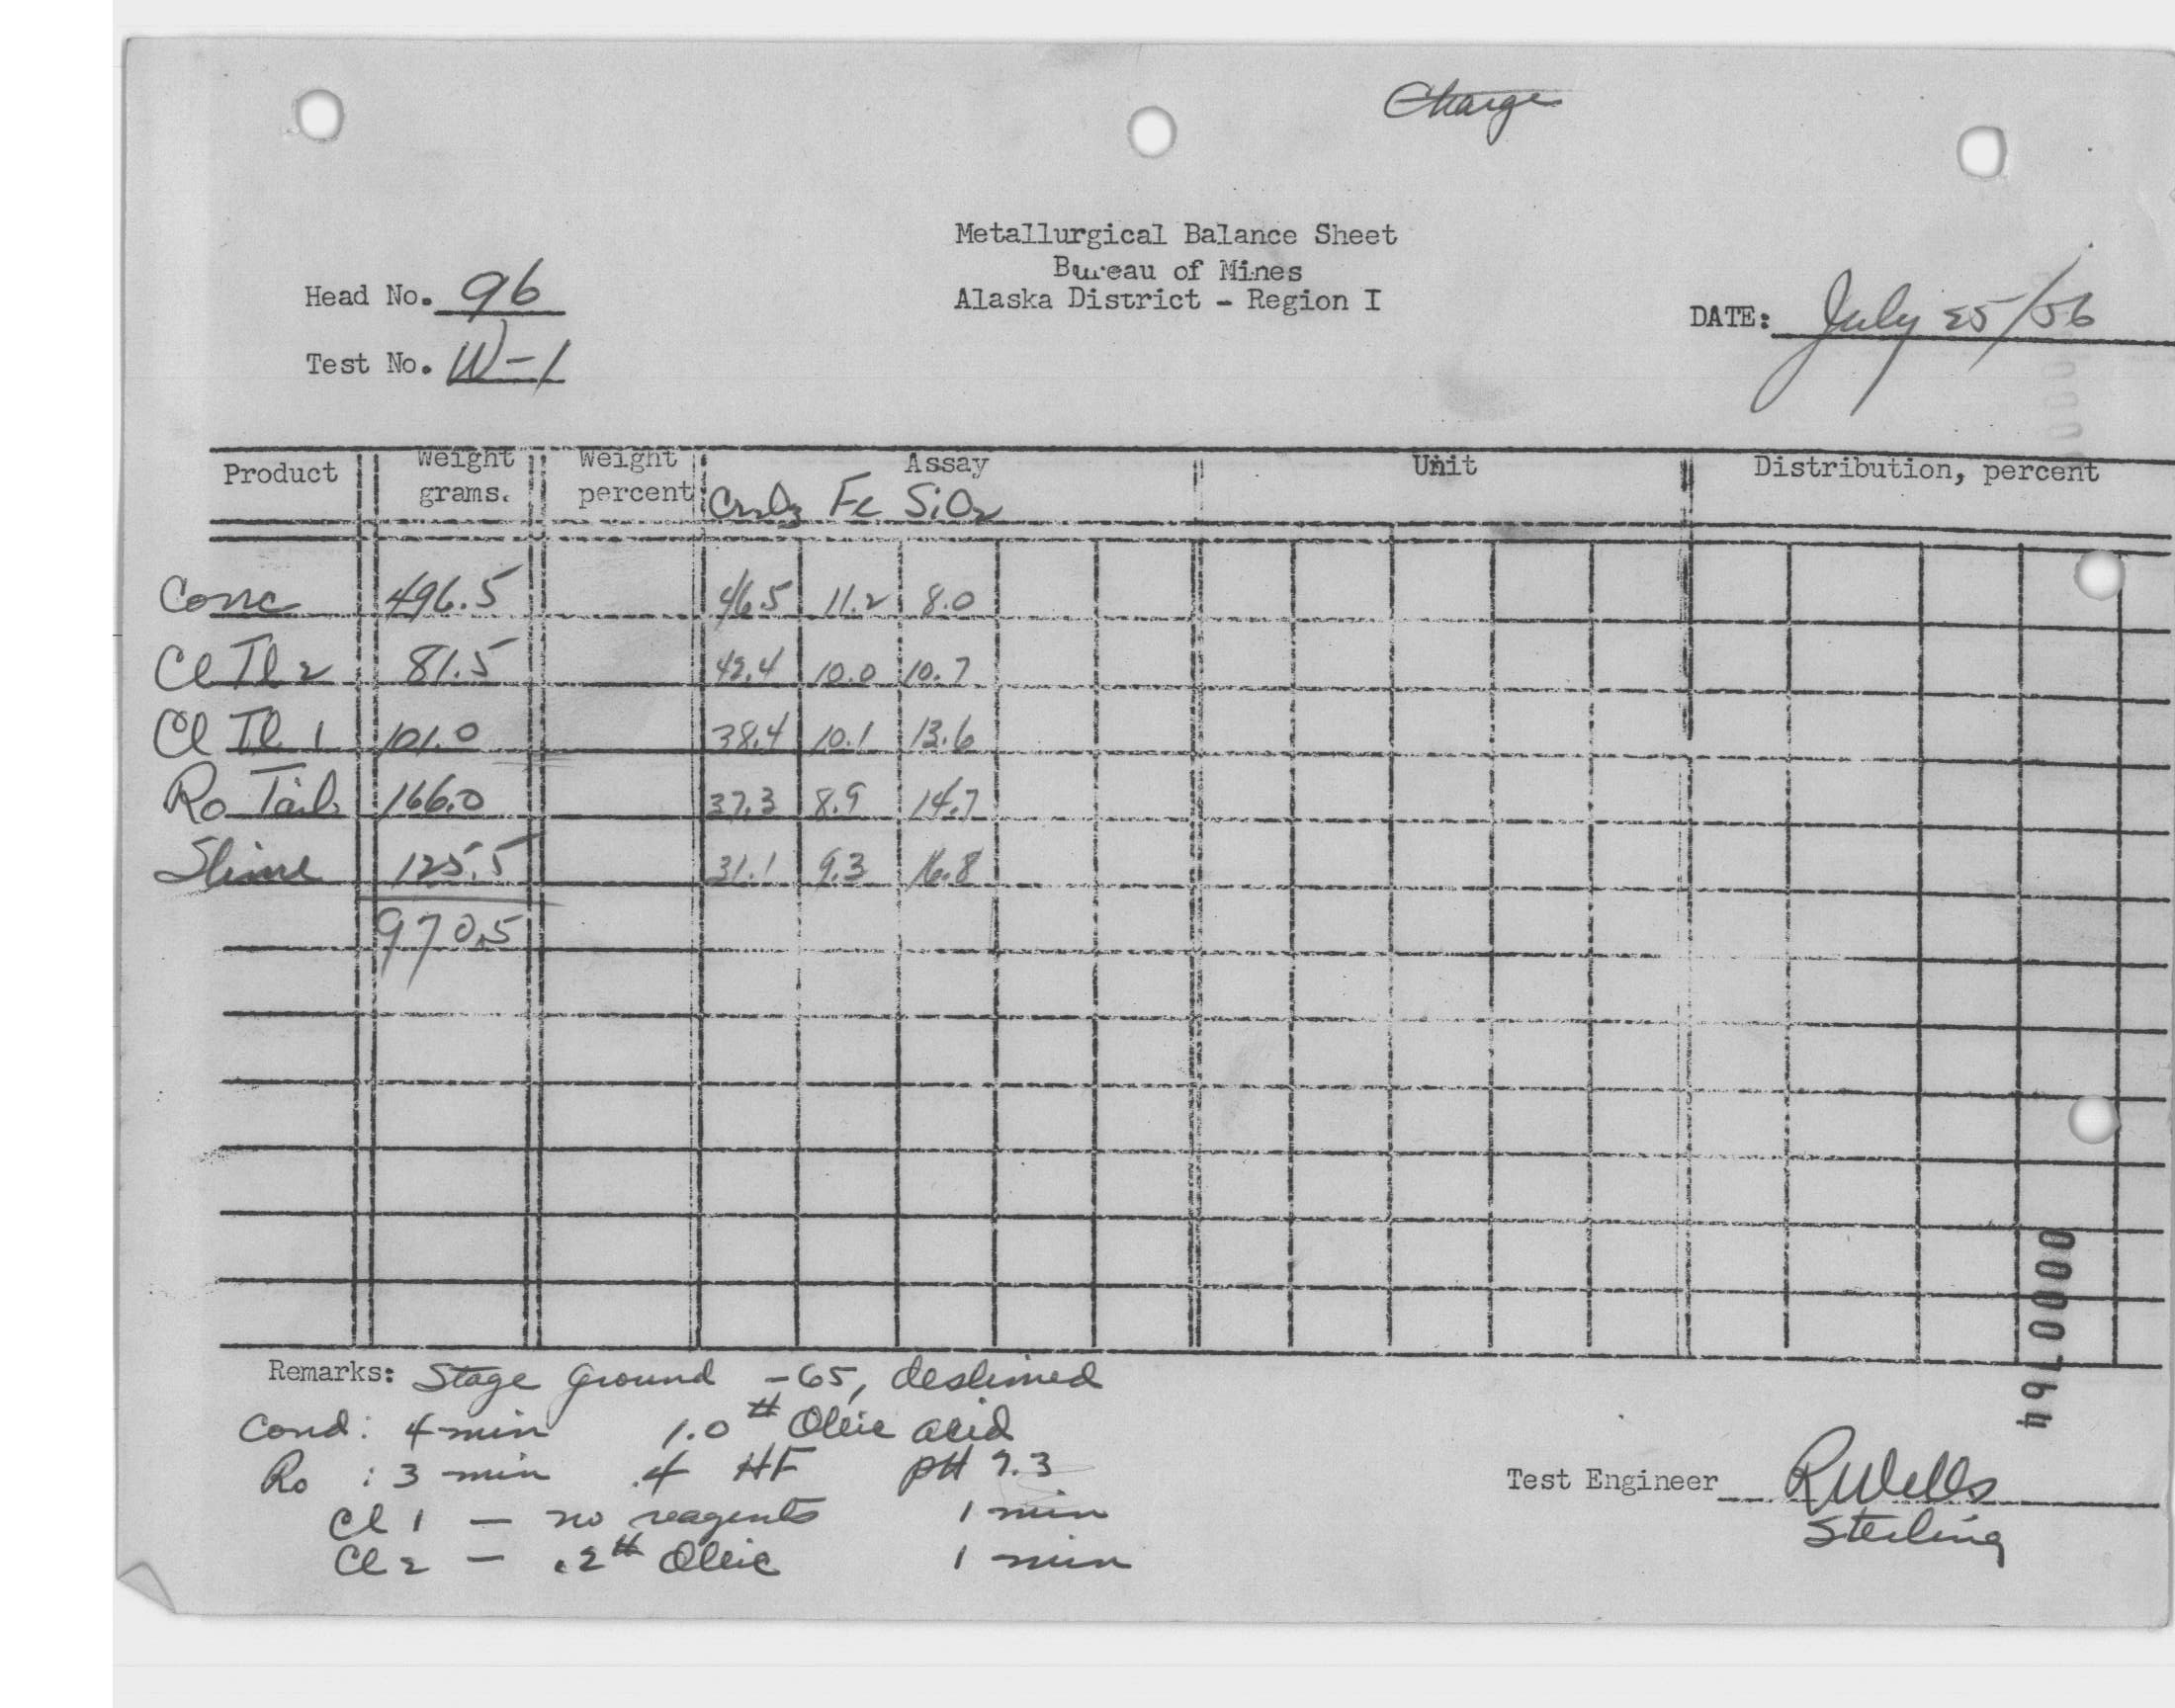 Charge
Metallurgical Balance Sheet
Bureau of Mines
Alaska District - Region I
Head No. 96
Test No. W-1
DATE: July 25/56
Product Weight grams. Weight percent Assay Unit Distribution, percent
Cr2O3 Fe SiO2
Conc 496.5 46.5 11.2 8.0
Cl Tl 2 81.5 42.4 10.0 10.7
Cl Tl 1 101.0 38.4 10.1 13.6
Ro Tail 166.0 37.3 8.9 14.7
Slime 125.5 31.1 9.3 16.8
970.5
Remarks: Stage Ground -65, deslimed
Cond: 4 min 1.0 # Oleic acid
Ro : 3 min .4 HF pH 7.3
Cl 1 - no reagents 1 min
Cl 2 - .2# Oleic 1 min
Test Engineer RWells
Sterling
0000764